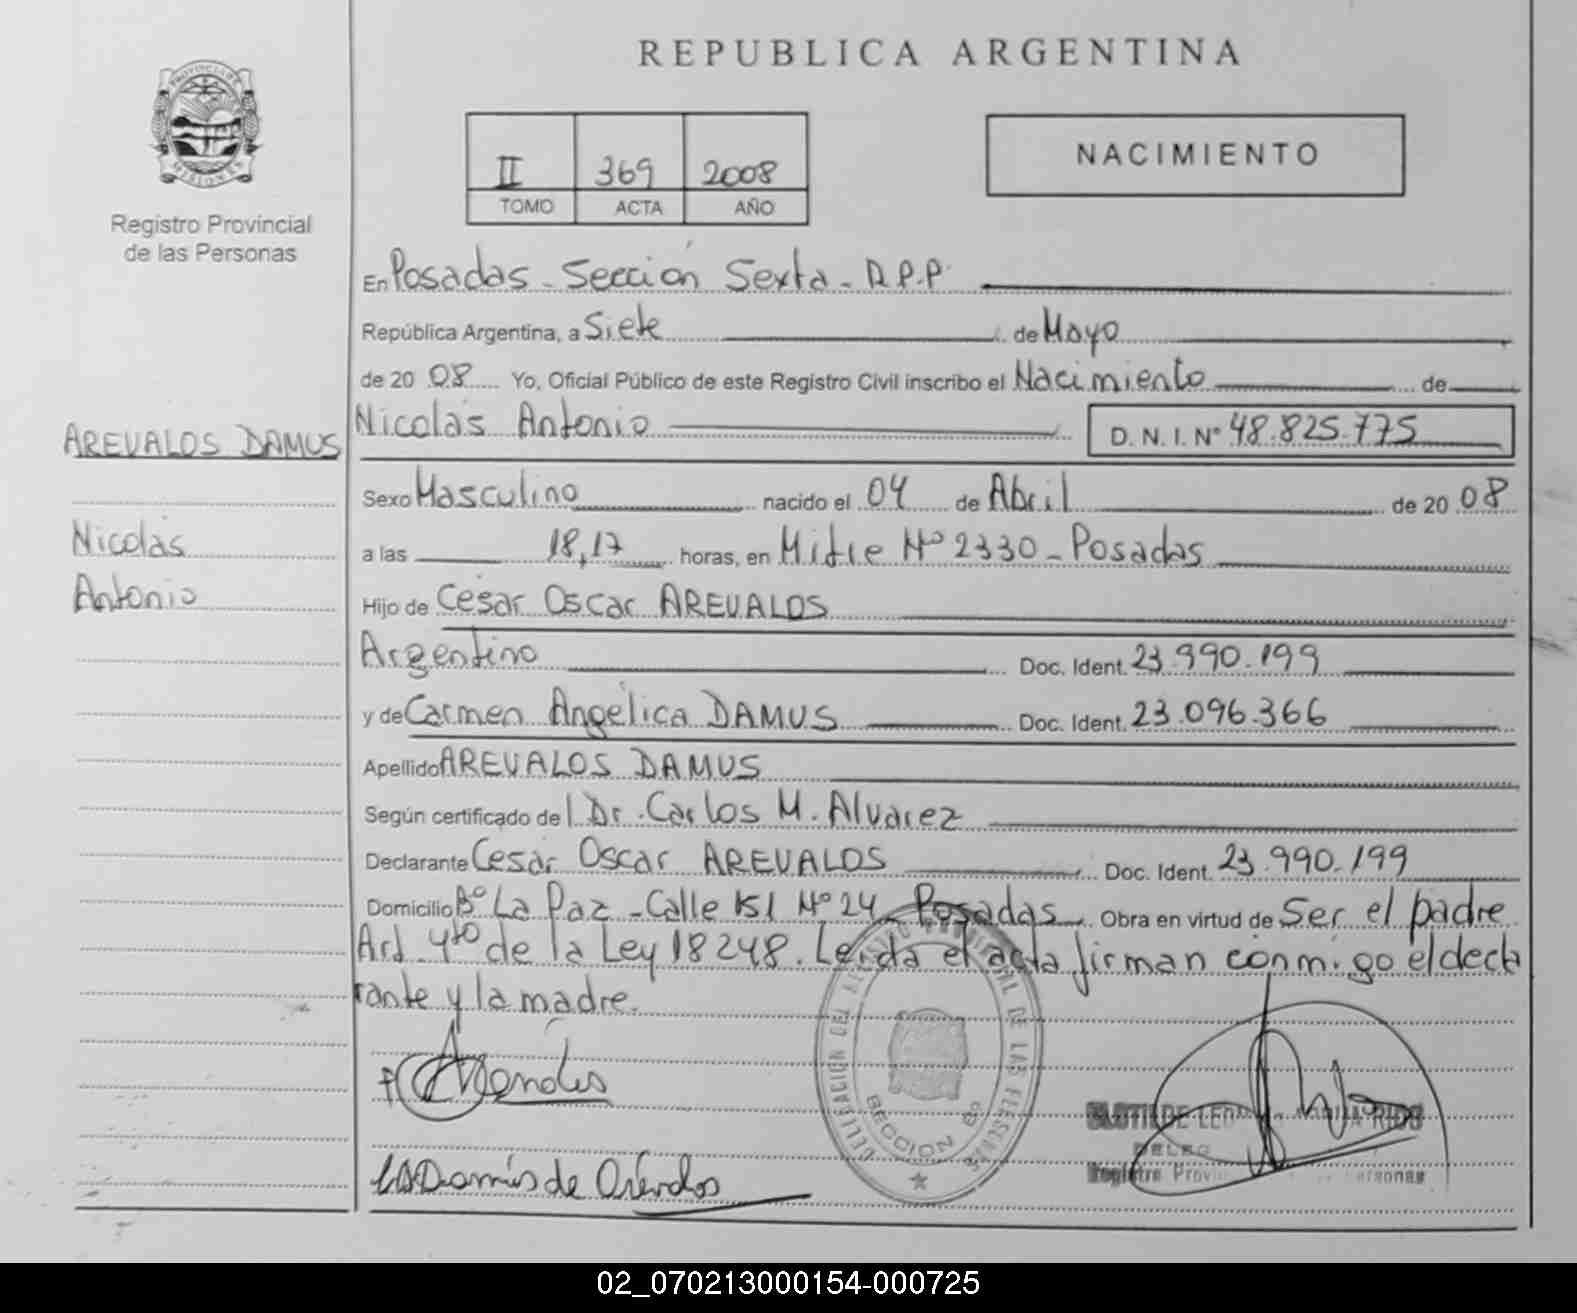 REPUBLICA ARGENTINA
PROVINCIA DE
MISIONES
Registro Provincial
de las Personas
II 369 2008
TOMO ACTA AÑO
NACIMIENTO
En Posadas - Sección Sexta - R.P.P.
República Argentina, a Siete de Mayo
de 20 08 Yo, Oficial Público de este Registro Civil inscribo el Nacimiento de
AREVALOS DAMUS
Nicolás
Antonio
Nicolás Antonio
D. N. I. Nº 48.825.775
Sexo Masculino nacido el 04 de Abril de 20 08
a las 18,17 horas, en Mitre Nº 2330 - Posadas
Hijo de César Oscar AREVALOS
Argentino Doc. Ident. 23.990.199
y de Carmen Angélica DAMUS Doc. Ident. 23.096.366
Apellido AREVALOS DAMUS
Según certificado del Dr. Carlos M. Alvarez
Declarante César Oscar AREVALOS Doc. Ident. 23.990.199
Domicilio Bº La Paz - Calle 151 Nº 24 Posadas Obra en virtud de Ser el padre
Art. 4to de la Ley 18248. Leída el acta firman conmigo el decla
rante y la madre.
DELEGACION DEL REGISTRO PROVINCIAL DE LAS PERSONAS
SECCION 6º
de Arévalos
Registro Provincial de las Personas
02_070213000154-000725